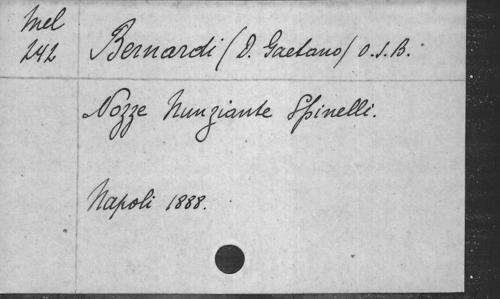 Mel
242
Bernardi (D. Gaetano) O.S.B.
Nozze Nunziante Spinelli.
Napoli 1888.